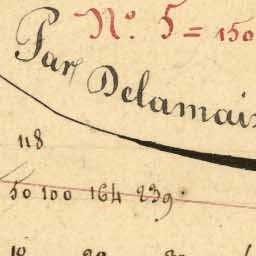 N.º 5 = 150
Par Delamais
118
50 100 164 239